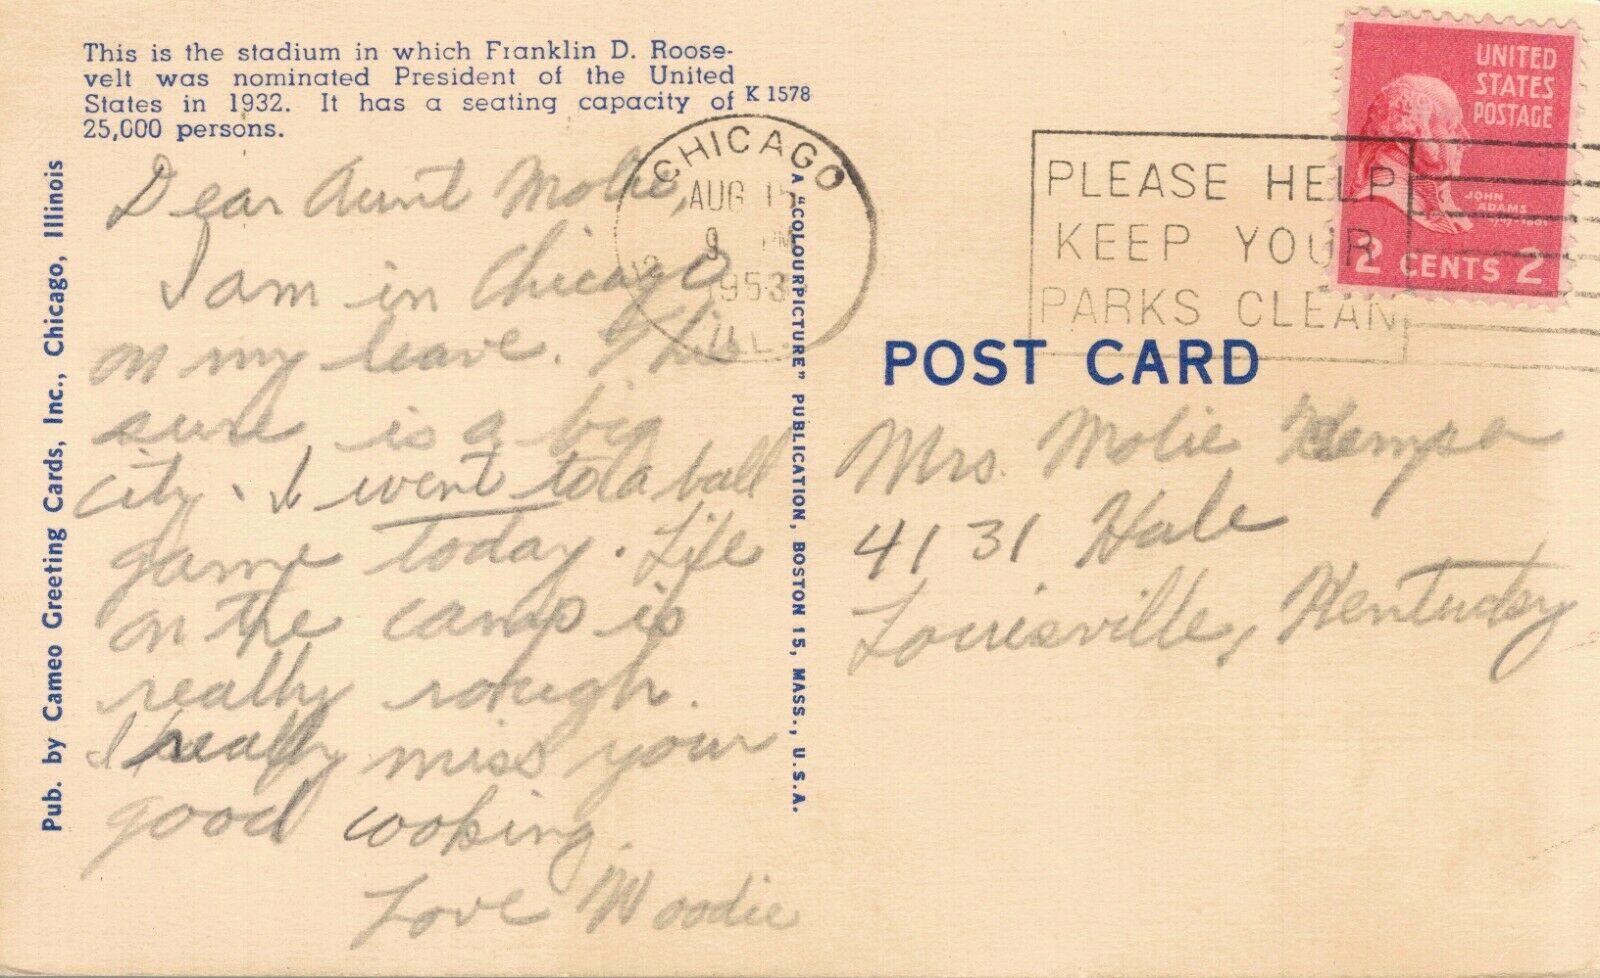 This is the stadium in which Franklin D. Roose-
velt was nominated President of the United
States in 1932. It has a seating capacity of
25,000 persons.
K 1578
Pub. by Cameo Greeting Cards, Inc., Chicago, Illinois
Dear Aunt Molie,
I am in Chicago
on my leave. This
sure is a big
city. I went to a ball
game today. Life
on the camp is
really rough.
I really miss your
good cooking.
Love Woodie
A "COLOURPICTURE" PUBLICATION, BOSTON 15, MASS., U.S.A.
CHICAGO
AUG 15
9 PM
1953
ILL.
PLEASE HELP
KEEP YOUR
PARKS CLEAN
UNITED
STATES
POSTAGE
JOHN
ADAMS
2 CENTS 2
POST CARD
Mrs. Molie
4131 Hale
Louisville, Kentucky